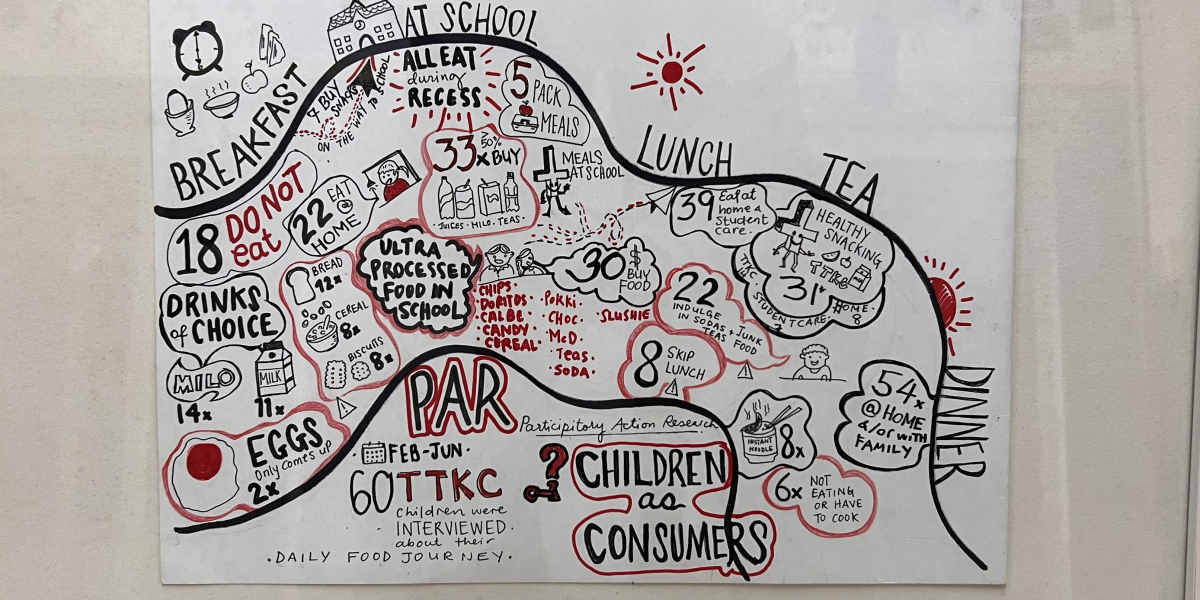 AT SCHOOL
BREAKFAST
LUNCH
TEA
DINNER
4 BUY
SNACKS
ON THE WAY
TO SCHOOL
ALL EAT
during
RECESS
5 PACK
MEALS
18 DO NOT
eat
22 EAT
@
HOME
33x BUY
≥50%
JUICES · MILO · TEAS
MEALS
AT SCHOOL
39 Eat at
home &
Student
care.
HEALTHY
SNACKING
31*
TTKC
TTKC
STUDENTCARE
7
HOME
8
DRINKS
of CHOICE
MILO
14x
MILK
11x
BREAD
12x
CEREAL
8x
BISCUITS
8x
ULTRA
PROCESSED
FOOD IN
SCHOOL
30 $
BUY
FOOD
· CHIPS ·
· DORITOS ·
· CALBE ·
· CANDY ·
· CEREAL ·
· Pokki ·
· CHOC ·
· McD ·
· Teas ·
· SODA ·
· SLUSHIE
22
INDULGE
IN SODAS +
TEAS
JUNK
FOOD
8 SKIP
LUNCH
EGGS
Only comes up
2x
PAR
Participitory Action Research
FEB-JUN ·
60 TTKC
children were
INTERVIEWED ·
about their
· DAILY FOOD JOURNEY ·
?
CHILDREN
as
CONSUMERS
INSTANT
NOODLE
8x
6x NOT
EATING
OR HAVE
TO COOK
54x
@ HOME
a/or with
FAMILY